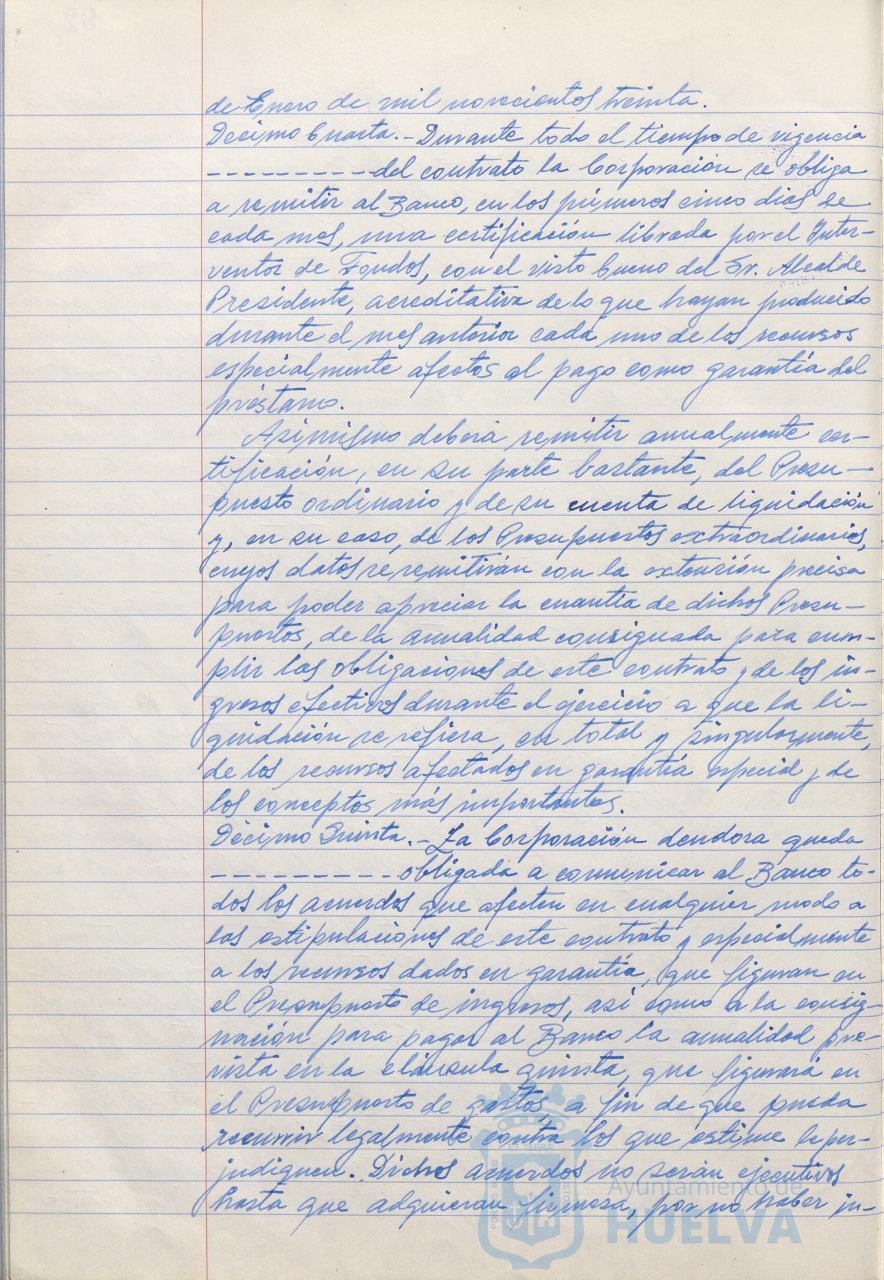 de Enero de mil novecientos treinta.
Décimo Cuarta.- Durante todo el tiempo de vigencia
---------- del contrato la Corporación se obliga
a remitir al Banco, en los primeros cinco dias de
cada mes, una certificación librada por el Inter-
ventor de Fondos, con el visto bueno del Sr. Alcalde
Presidente, acreditativa de lo que hayan producido
durante el mes anterior cada uno de los recursos
especialmente afectos al pago como garantía del
préstamo.
Asimismo deberá remitir anualmente cer-
tificación, en su parte bastante, del Presu-
puesto ordinario y de su cuenta de liquidación
y, en su caso, de los Presupuestos extraordinarios,
cuyos datos se remitirán con la extensión precisa
para poder apreciar la cuantía de dichos Presu-
puestos, de la anualidad consignada para cum-
plir las obligaciones de este contrato y de los in-
gresos efectivos durante el ejercicio a que la li-
quidación se refiera, en total y singularmente,
de los recursos afectados en garantía especial y de
los conceptos más importantes.
Décimo Quinta.- La Corporación deudora queda
---------- obligada a comunicar al Banco to-
dos los acuerdos que afecten en cualquier modo a
las estipulaciones de este contrato y especialmente
a los recursos dados en garantía, que figuran en
el Presupuesto de ingresos, así como a la consig-
nación para pagar al Banco la anualidad pre-
vista en la cláusula quinta, que figurará en
el Presupuesto de gastos, a fin de que pueda
recurrir legalmente contra los que estime le per-
judiquen. Dichos acuerdos no serán ejecutivos
hasta que adquieran firmeza, por no haber in-
Ayuntamiento de
HUELVA